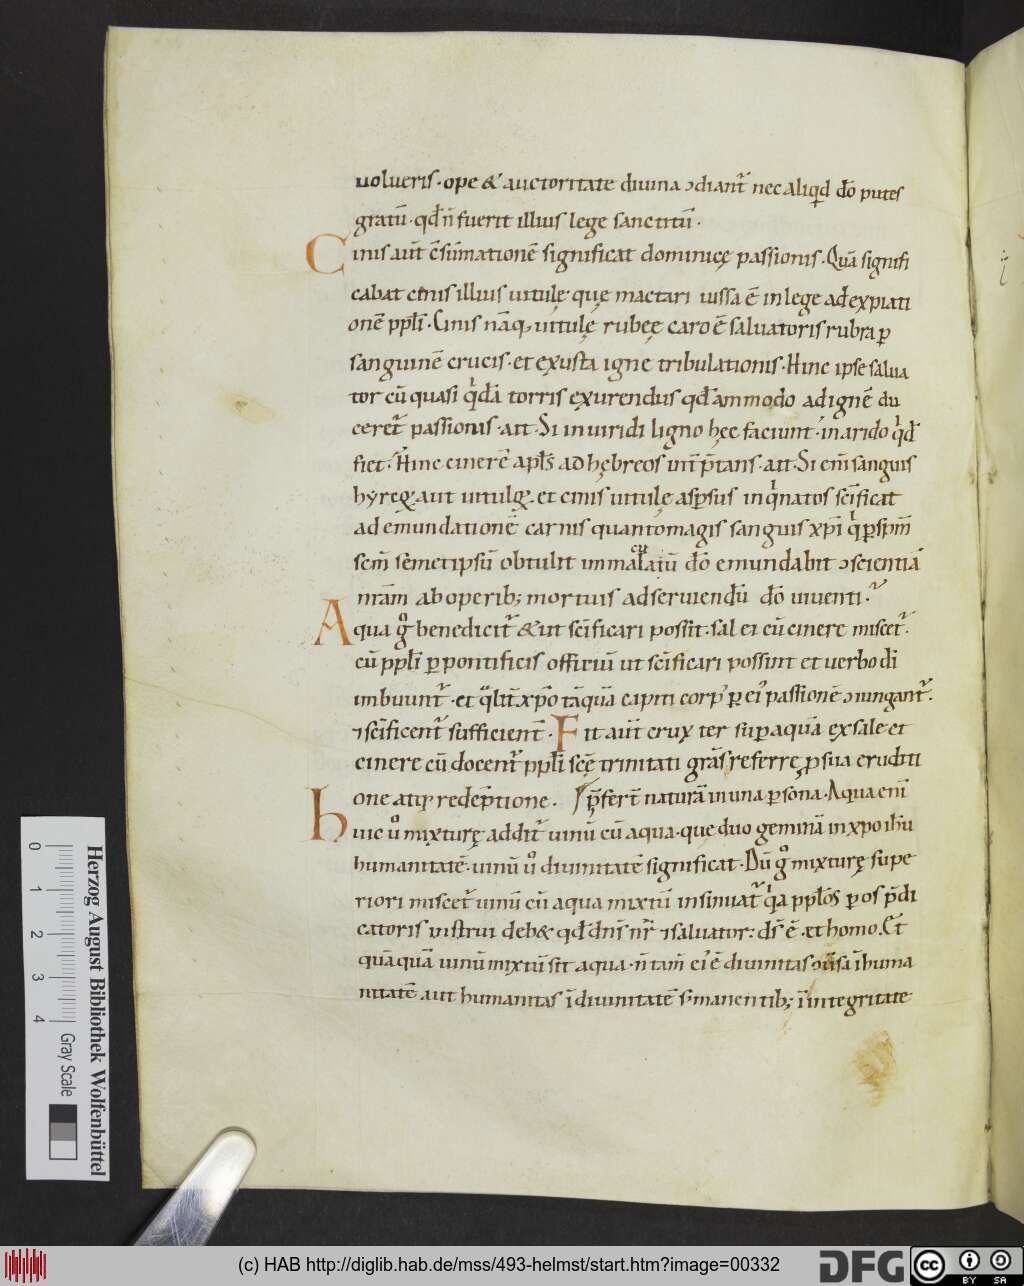 uolueris · ope & auctoritate diuina ↄdiant᷑ nec aliqd do putes
gratū · qd n̄ fuerit illius lege sanctitū ·
Cinis aut̄ ↄsūmationē significat dominicę passionis . Quā signifi
cabat cinis illius uitulę · quę mactari iussa ē in lege ad expiati
onē ppl̄i · Cinis nāq; uitulę rubeę caro ē saluatoris rubra p̲
sanguinē crucis · et exusta igne tribulationis · Hinc ipse salua
tor cū quasi qͥdā torris exurendus qd ammodo ad ignē du
ceret᷑ passionis · ait · Si in uiridi ligno hęc faciunt · in arido qͥd
fiet · Hinc cinerē apl̄s ad hębreos int̄p̄tans · ait · Si eni̅ sanguis
hẏrcoꝝ aut uituloꝝ · et cinis uitulę asp̲sus inqͥnatos sc̄ificat
ad emundationē carnis quantomagis sanguis xp̄i qͥ p̲ sp̄m
sc̄m semetipsū obtulit immac̄latū do emundabit ↄscientiā
nr̄am ab operib; mortuis ad seruiendū do uiuenti ·
Aqua gͦ benedicit᷑ & ut sc̄ificari possit · sal ei cū cinere miscet᷑ ·
cū ppl̄i p̲ pontificis officiū ut sc̄ificari possint et uerbo di
imbuunt᷑ · et qͣlit̄ xp̄o tāquā capiti corp᷒ p̲ ei᷒ passionē ↄiungant᷑ .
⁊ sc̄ificent᷑ sufficient̄ · Fit aut̄ crux ter sup̲ aquā ex sale et
cinere cū docent᷑ ppl̄i scę trinitati grās referrę p̲ sua eruditi
one atq; redēptione . p̄fert̄ naturā in una p̲sona · Aqua eni̅
Huic uͦ mixturę addit᷑ uinū cū aqua · que duo geminā in xp̄o ihū
humanitatē · uinū uͦ diuinitatē significat · Dū gͦ mixturę supe
riori miscet᷑ uinū cū aqua mixtū insinuat᷑ qͥa ppl̄os p̲ os p̄di
catoris instrui deb& qd dn̄s nr̄ ⁊ saluator : ds̄ ē · et homo . Et
quāquā uinū mixtū sit aqua · n̄ tam̄ ei᷒ ē diuinitas ↄuersa ī huma
nitatē aut humanitas ī diuinitatē s; manentib; ī integritate
0
1
2
3
4
Gray Scale
Herzog August Bibliothek Wolfenbüttel
(c) HAB http://diglib.hab.de/mss/493-helmst/start.htm?image=00332
DFG
cc
BY SA